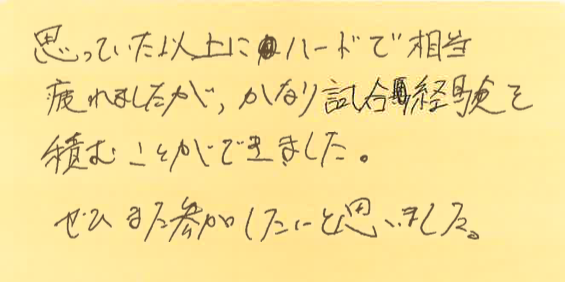 思っていた以上にハードで相当
疲れましたが、かなり試合経験を
積むことができました。
ぜひまた参加したいと思いました。